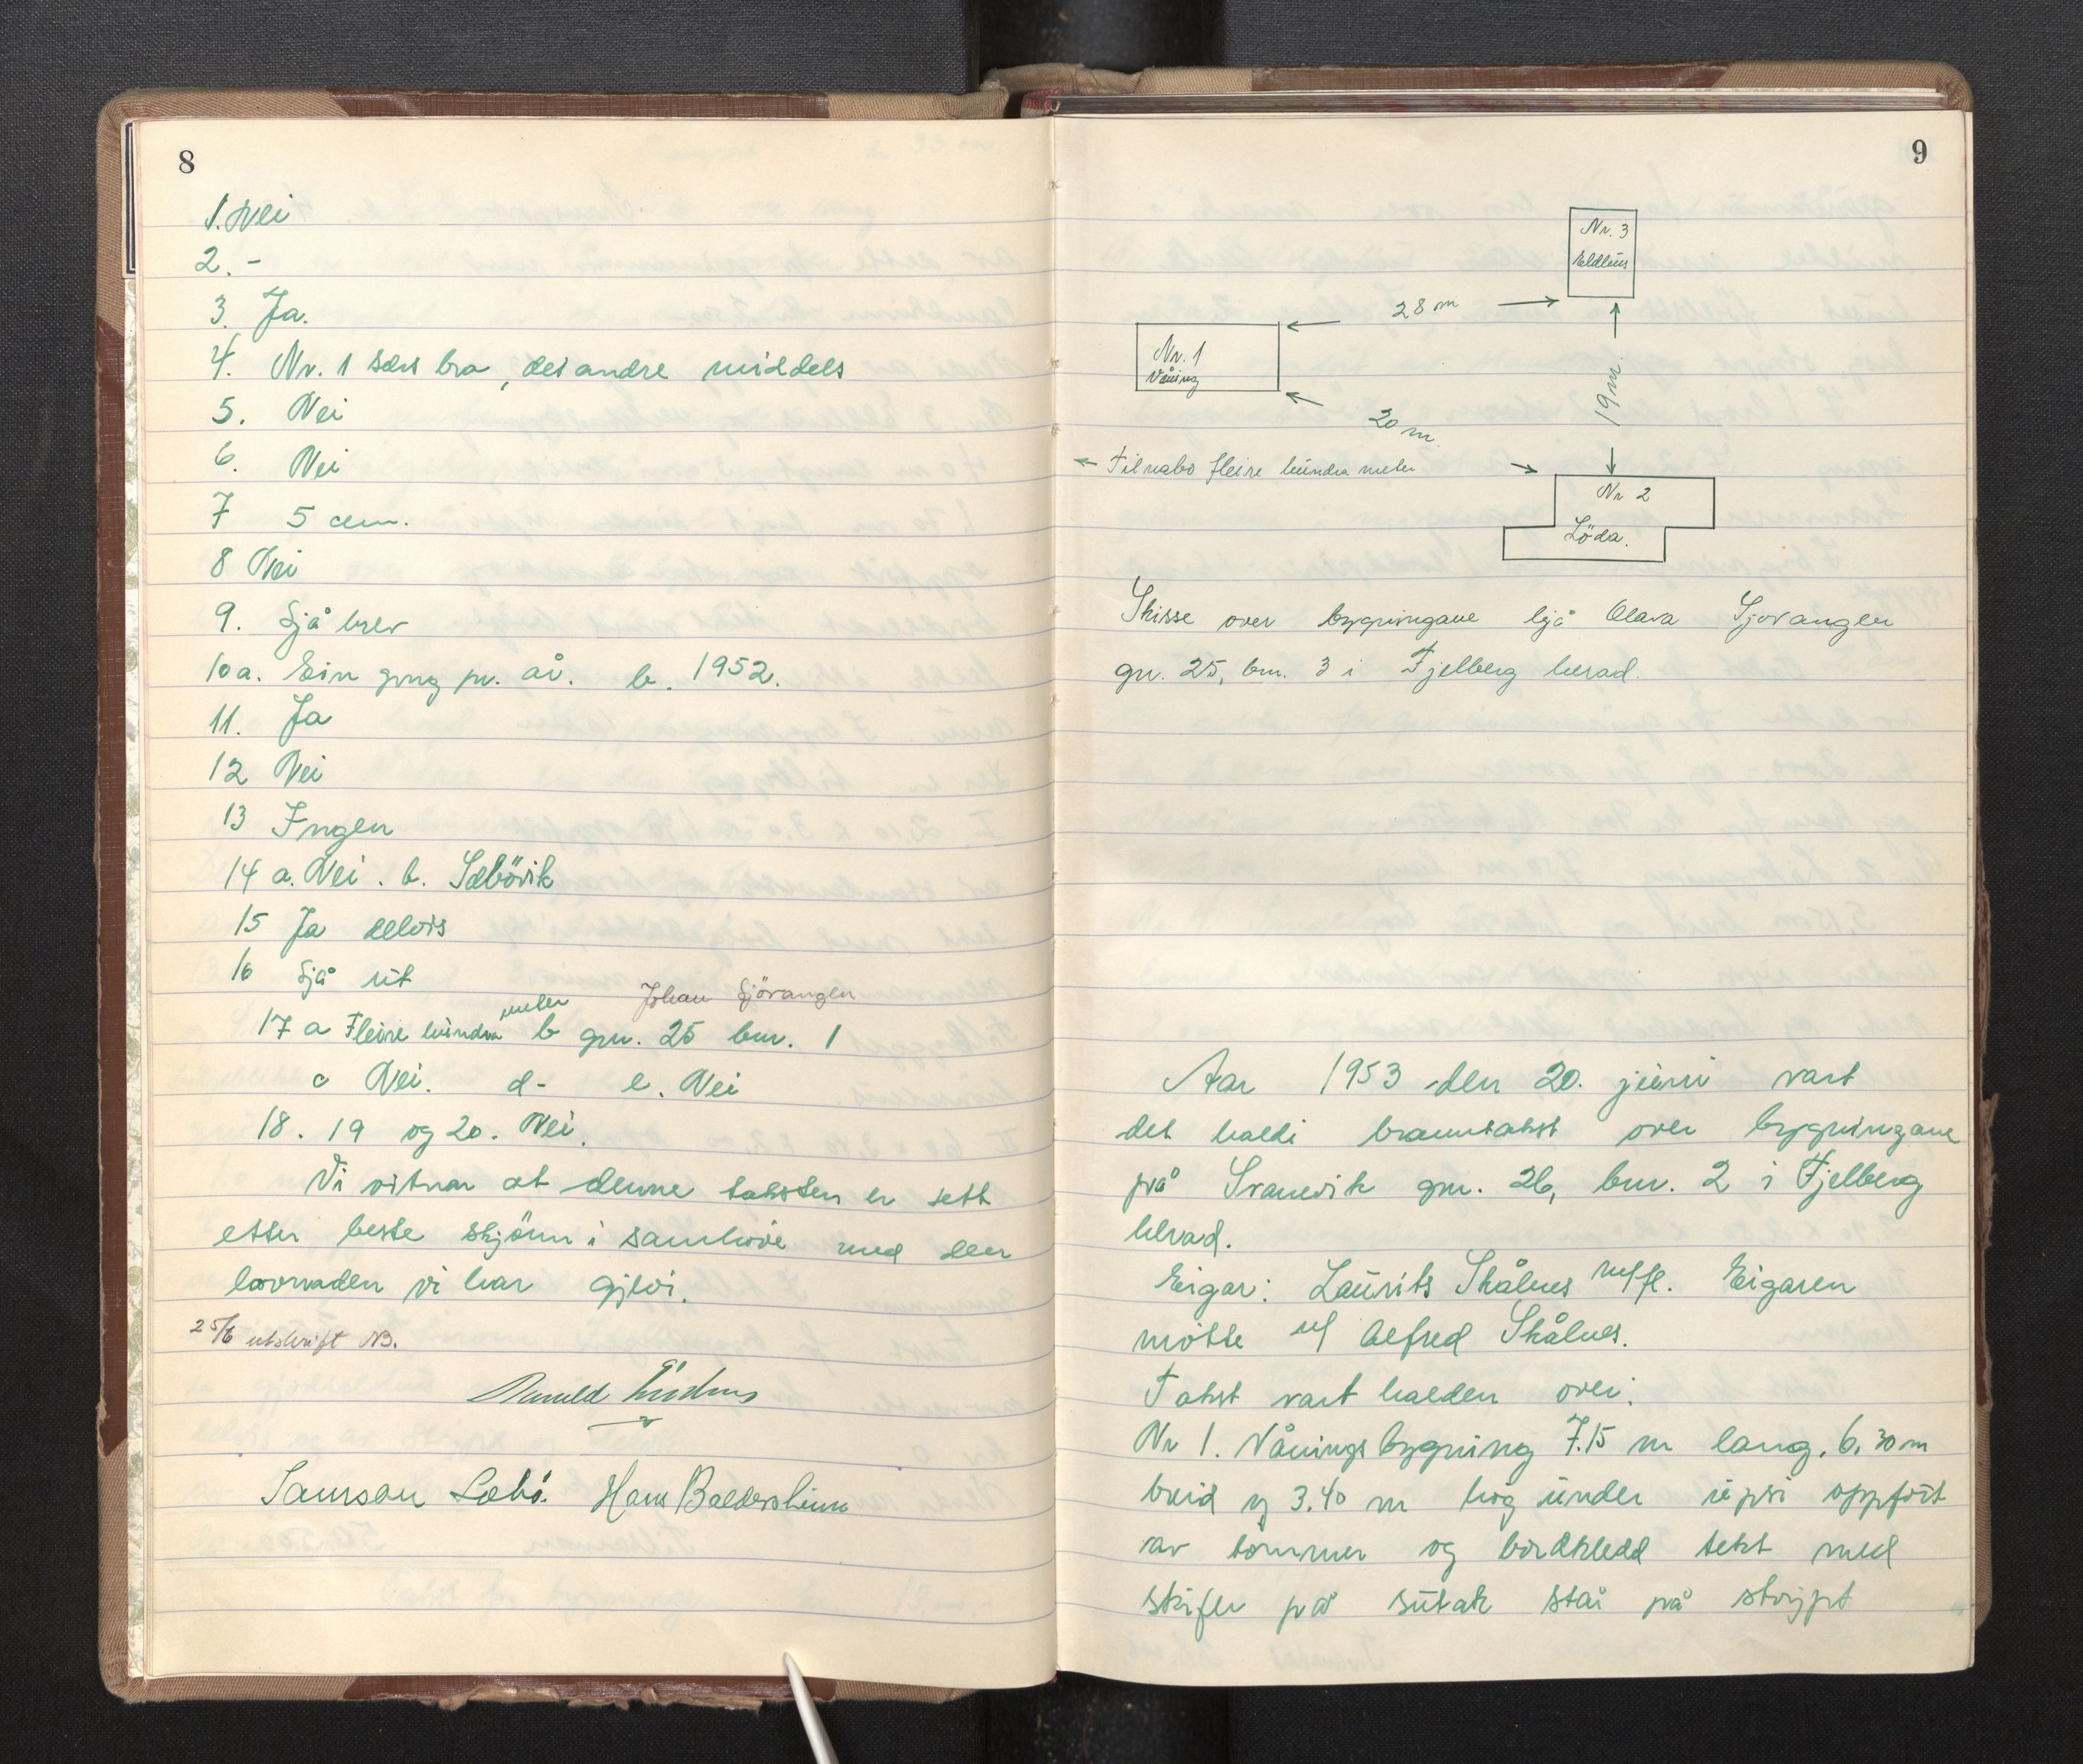 8
1. Nei
2. -
3. Ja.
4. Nr. 1 særs bra, dei andre middels
5. Nei
6. Nei
7 5 cm.
8 Nei
9. Sjå brev
10 a. Ein gong pr. år. b. 1952.
11. Ja
12 Nei
13 Ingen
14 a. Nei. b. Sæbövik
15 Ja delvis
16 Sjå rit
17 a Fleire hundra meter b gnr. 25 bnr. 1 Johan Sjövangen
c Nei. d - e. Nei
18. 19 og 20. Nei.
Vi vitnar at denne taksten er sett
etter beste skjönn i samhöve med den
lovnaden vi har gjevi.
25/6 utskrift NB.
Samson Sæbö. Hans Baldersheim
9
Nr. 3
Eldhus
28 m
Nr. 1
Våning
19 m
20 m.
← Til nabo fleire hundra meter
Nr 2
Löda.
Skisse over bygningane hjå Olava Sjovangen
gnr. 25, bnr. 3 i Fjelberg herad.
Aar 1953 den 20. juni vart
det haldi branntakst over bygningane
på Svanevik gnr. 26, bnr. 2 i Fjelberg
herad.
Eigar: Laurits Skålnes m/fl. Eigaren
mötte v/ Alfred Skålnes.
Takst vart halden over:
Nr 1. Våningsbygning 7.15 m lang, 6,30 m
breid og 3.40 m hög under upsi oppfört
av tömmer og bordkledd tekt med
skifer på sutak står på stöypt